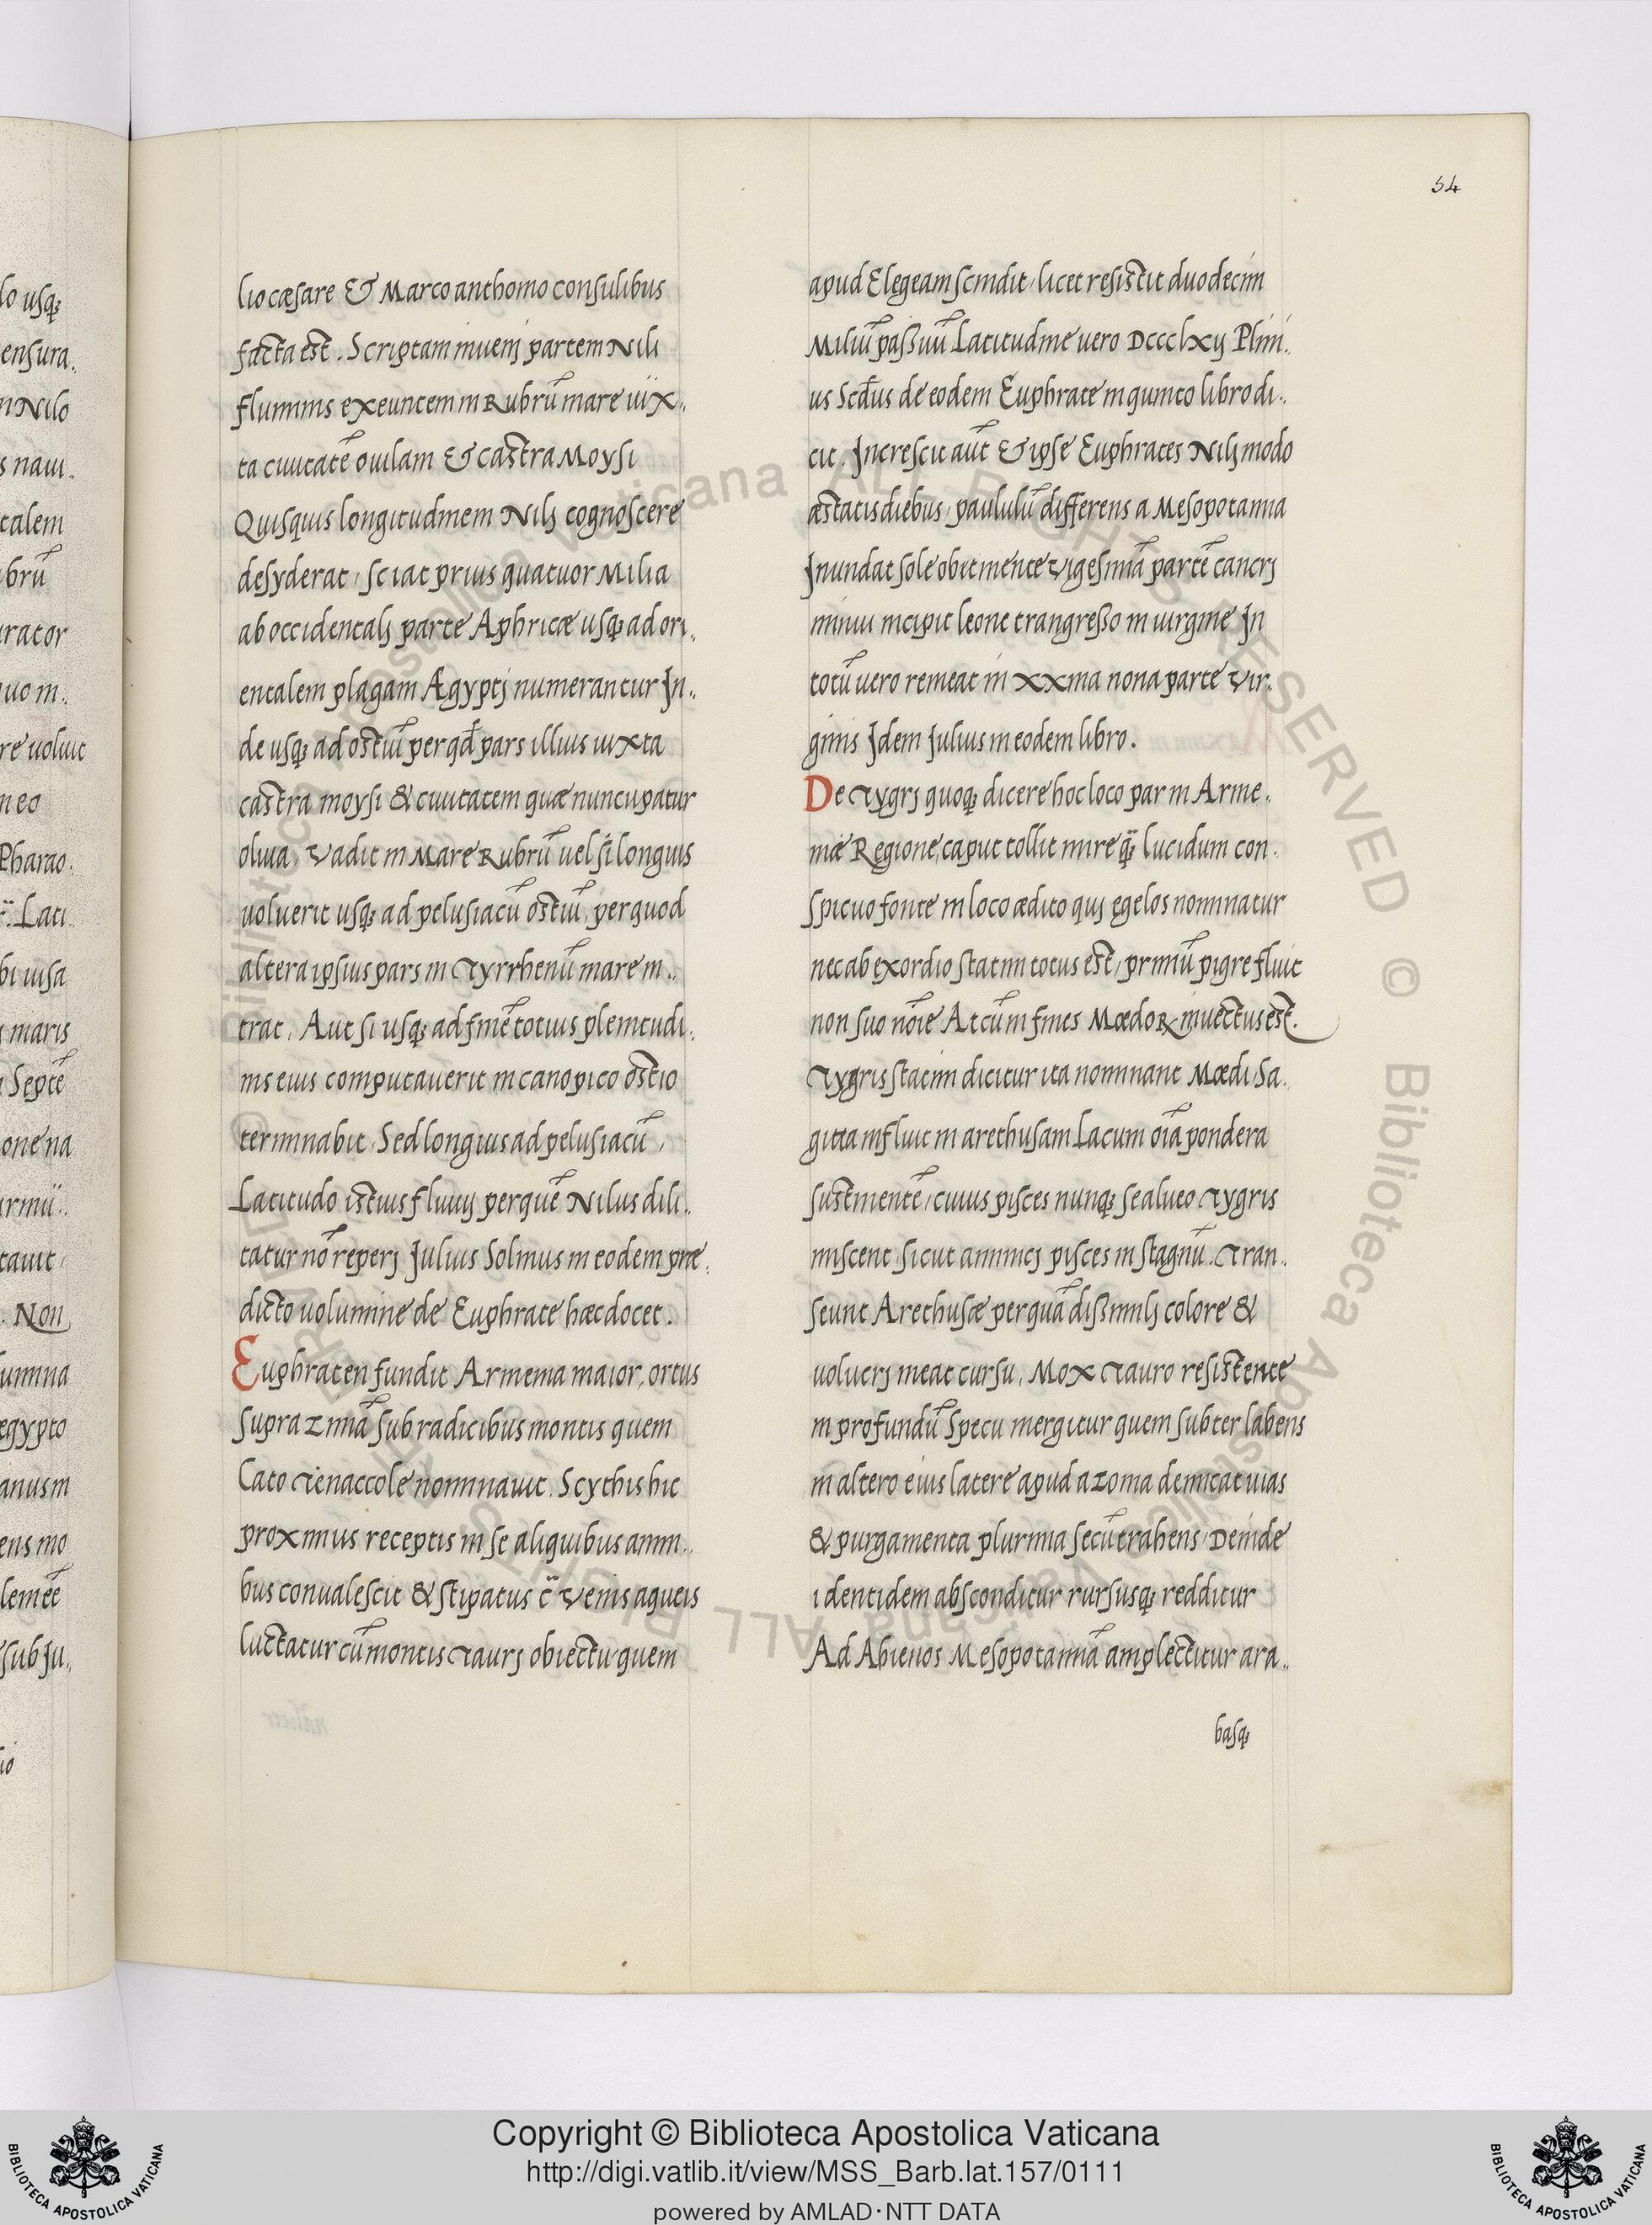 54
lo usq;
ensura.
n Nilo
s naui.
talem
bru᷉
rator
uo in.
re uoluit
neo
Pharao.
Lati.
bi uisa
maris
Septe᷉
one na
tauit
. Non
egypto
anus in
ens mo
sub Ju.
liocæsare & Marco anthonio consulibus
facta est . Scriptam inuenj partem Nili
fluminis exeuntem in Rubrũ mare iüx.
ta ciuitatẽ ouilam & castra Moysi
Quisquis longitudinem Nilj cognoscere
desyderat, sciat prius quatuor Milia
ab occidentalj parte Aphricæ usq; ad ori.
entalem plagam Ægyptj numerantur Jn.
de usq; ad ostiũ per qđ pars illius iuxta
castra moysi & ciuitatem quæ nuncupatur
oliuia, Vadit in Mare Rubrũ uel si longuis
uoluerit usq; ad pelusiacũ ostiũ, per quod
altera ipsius pars in Tyrrhenũ mare in.
trat, Aut si usq; ad finẽ totius plenitudi.
nis eius computauerit in canopico ostio
terminabit, Sed longius ad pelusiacũ,
Latitudo istius fluuij per quẽ Nilus dili.
tatur nõ reperj Julius Solinus in eodem præ.
dicto uolumine de Euphrate hæc docet .
Euphraten fundit Armenia maior, ortus
supra zimã sub radicibus montis quem
Cato Tienaccole nominauit. Scythis hic
proximus receptis in se aliquibus amni.
bus conualescit & stipatus c̈ Venis aqueis
luctatur cũ montis Taurj obiectu, quem
apud Elegeam scindit, licet resistit duodecim
Miliũ passuũ Latitudine uero Dccclxij Plini.
us Scđus de eodem Euphrate in quinto libro di.
cit. Jncrescit aũt & ipse Euphrates Nilj modo
æstatis diebus, paululũ differens a Mesopotamia
Jnundat sole obtinente vigesimã partẽ cancrj
minui incipit leone trangresso in uirgine Jn
totũ uero remeat in xxma nona parte Vir.
ginis Jdem Julius in eodem libro .
De Tygrj quoq; dicere hoc loco par in Arme.
niæ Regione, caput tollit mire q̈; lucidum con.
spicuo fonte in loco ædito quj egelos nominatur
nec ab exordio statim totus est, primũ pigre fluit
non suo nõie At cũ in fines Mædoꝝ inuectus est.
Tygris statim dicitur ita nominant Mædi Sa.
gitta influit in arethusam Lacum oĩa pondera
sustinentẽ, cuius pisces nunq; se alueo Tygris
miscent sicut amnicj pisces in stagnũ. Tran.
seunt Arethusæ per quã dissimilj colore &
uolucrj meat cursu. Mox Tauro resistente
in profundũ specu mergitur quem subter labens
in altero eius latere apud azoma demicat uias
& purgamenta plurima secũ trahens, Deinde
identidem absconditur rursusq; redditur
Ad Abienos Mesopotamiã amplectitur ara.
basq;
Copyright © Biblioteca Apostolica Vaticana
http://digi.vatlib.it/view/MSS_Barb.lat.157/0111
powered by AMLAD·NTT DATA